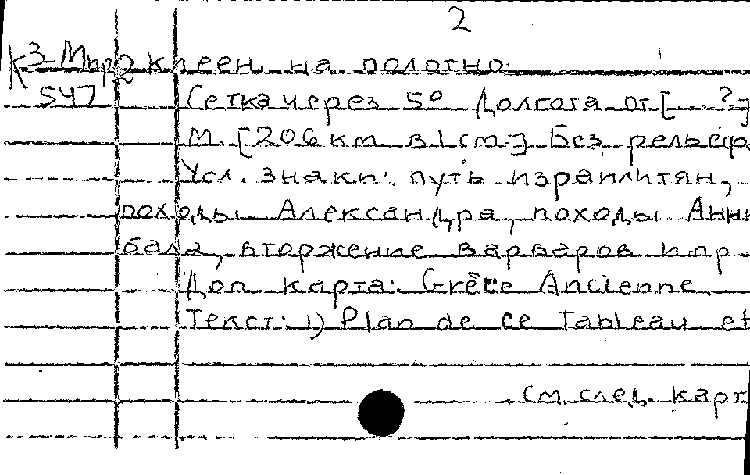 2
К 3-Мир/2 клеен на полотно
547 Сетка через 5° Долгота от [...?]
М. [206 км в 1 см.] Без рельеф
Усл. знаки: путь израилитян,
походы Александра, походы Анни
бала, вторжение варваров и пр.
Доп. карта: Grèce Ancienne
Текст: 1) Plan de ce Tableau et
См. след. карт